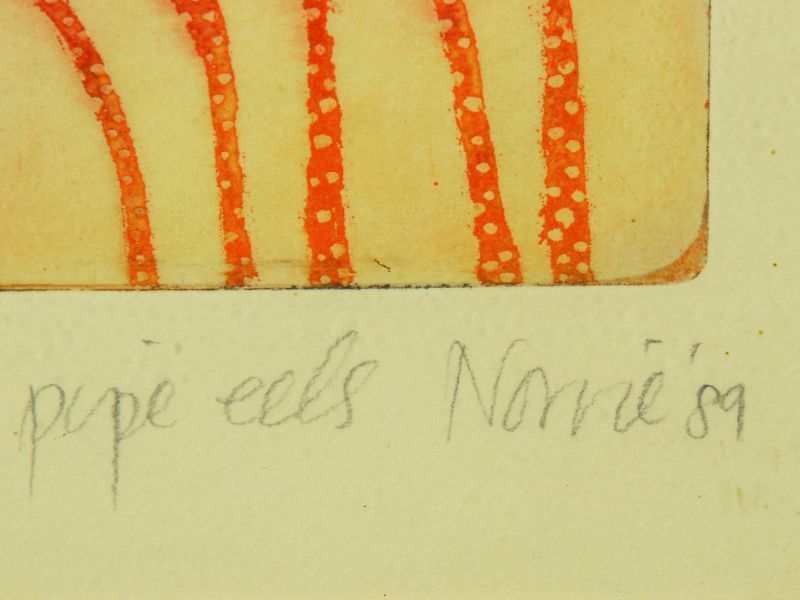 pipe eels Norrie '89